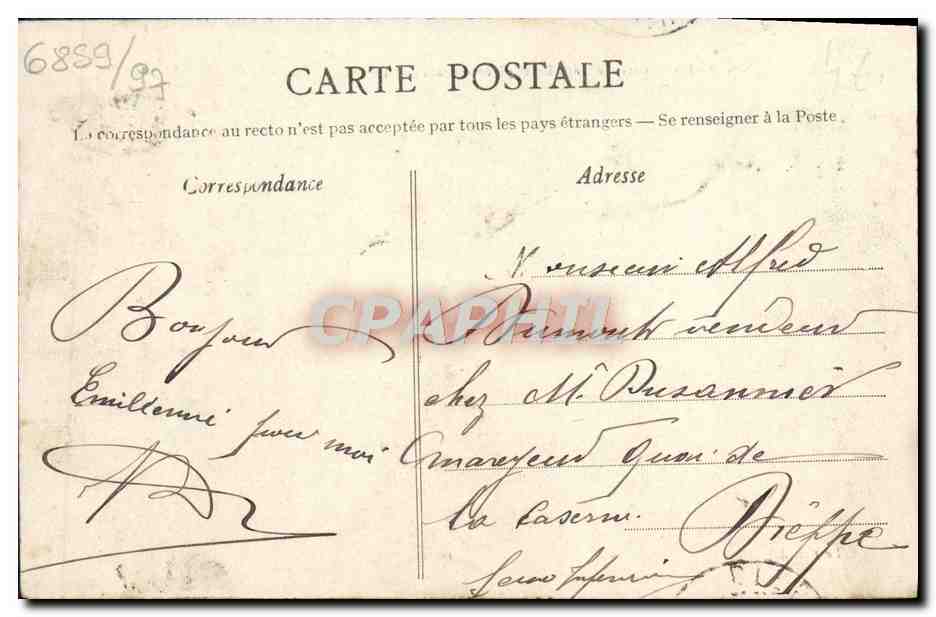 6859/97
CARTE POSTALE
La correspondance au recto n'est pas acceptée par tous les pays étrangers — Se renseigner à la Poste.
Correspondance
Adresse
Bonjour
pour moi
Monsieur Alfred
Dumont vendeur
chez Mr Dusannier
mareyeur Quai de
la Caserne
Dieppe
Seine Inférieure
CPAPHIL